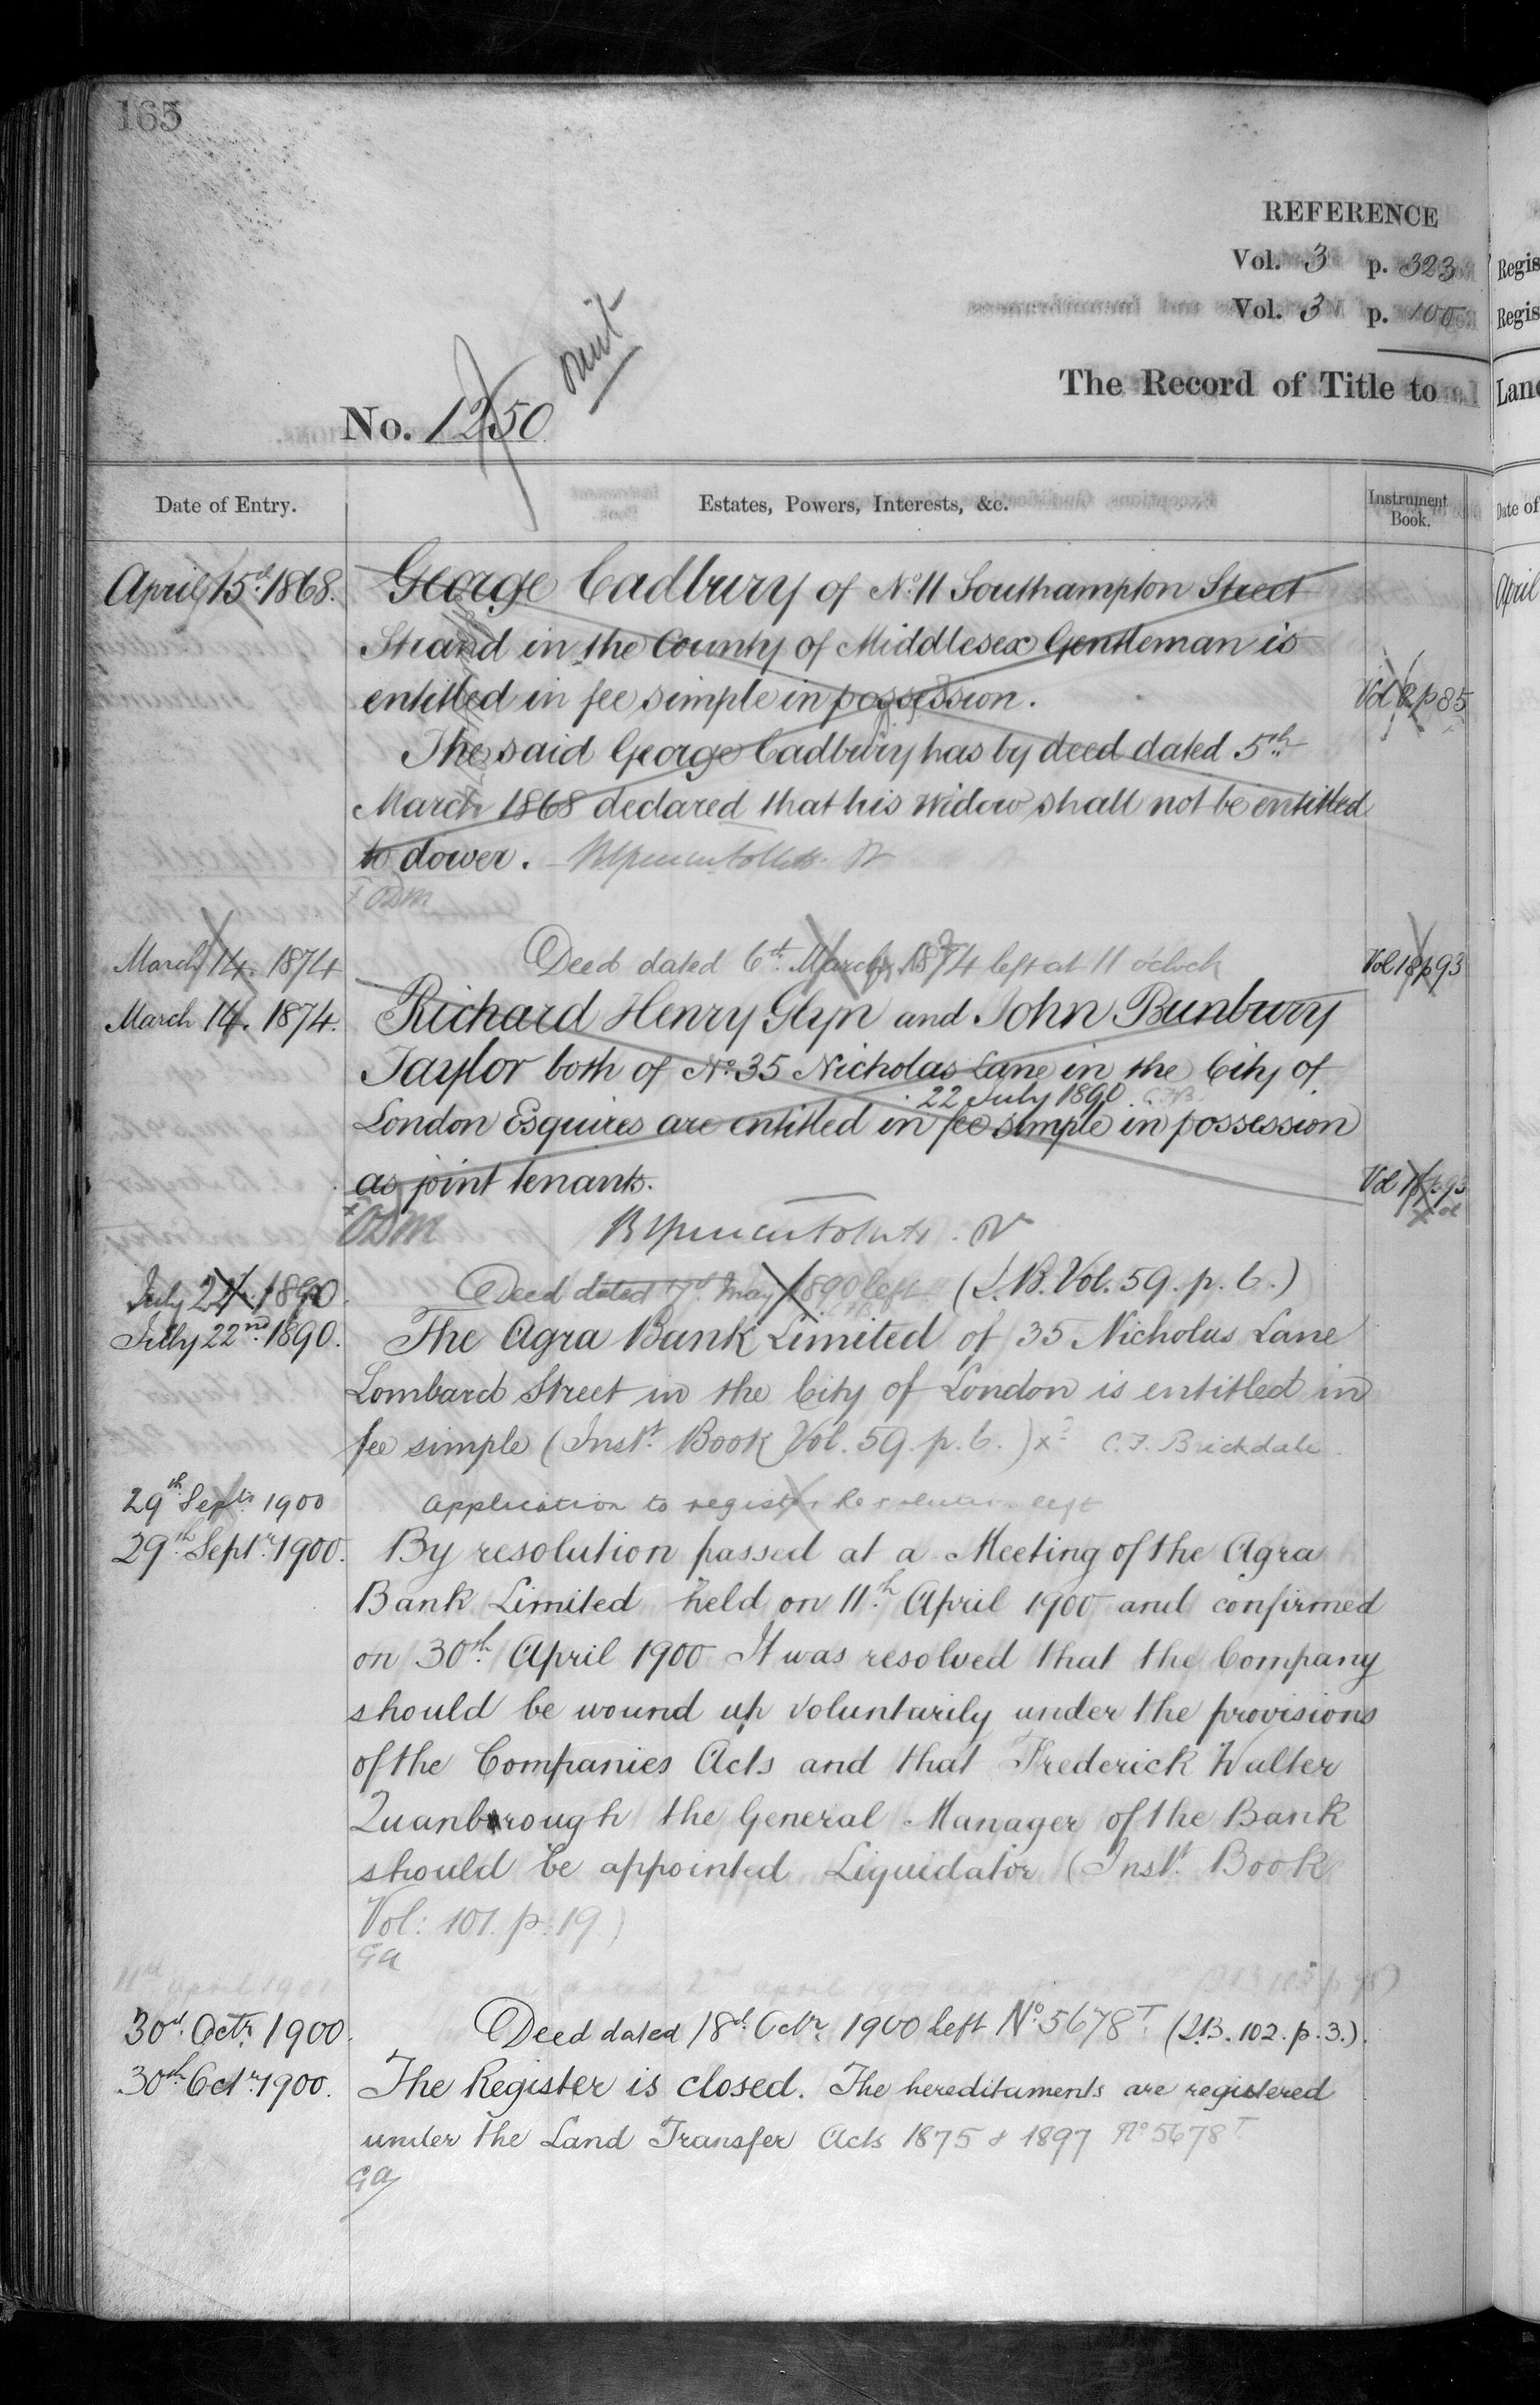 165
REFERENCE
Vol. 3 p. 323
Vol. 3 p. 100
The Record of Title to
No. 1250
Date of Entry.
Estates, Powers, Interests, &c.
Instrument Book.
April 15th 1868. George Cadbury of No. 11 Southampton Street
Strand in the County of Middlesex Gentleman is
entitled in fee simple in possession. Vol 2 p 85
The said George Cadbury has by deed dated 5th
March 1868 declared that his widow shall not be entitled
to dower.
ODM
March 14. 1874 Deed dated 6th March 1874 left at 11 o'clock Vol 18 p 93
March 14. 1874. Richard Henry Glyn and John Bunbury
Taylor both of No. 35 Nicholas Lane in the City of
22 July 1890. C.F.B.
London Esquires are entitled in fee simple in possession
as joint tenants. Vol 18 p 93
ODM
July 22 1890. Deed dated 7th May 1890 left (I.B. Vol. 59. p. 6.)
July 22nd 1890. The Agra Bank Limited of 35 Nicholas Lane
Lombard Street in the City of London is entitled in
fee simple (Inst. Book Vol. 59. p. 6.) C.F. Brickdale
29th Septr 1900 Application to register Resolution left
29th Septr. 1900. By resolution passed at a Meeting of the Agra
Bank Limited held on 11th April 1900 and confirmed
on 30th April 1900 It was resolved that the Company
should be wound up voluntarily under the provisions
of the Companies Acts and that Frederick Walter
Quanbrough the General Manager of the Bank
should be appointed Liquidator (Inst. Book
Vol: 101. p. 19)
GA
30th Octr. 1900. Deed dated 18th Octr. 1900 left No. 5678T (I.B. 102. p. 3.).
30th Octr. 1900. The Register is closed. The hereditaments are registered
under the Land Transfer Acts 1875 & 1897 No 5678T
GA
Regis
Regis
Land
Date of
April